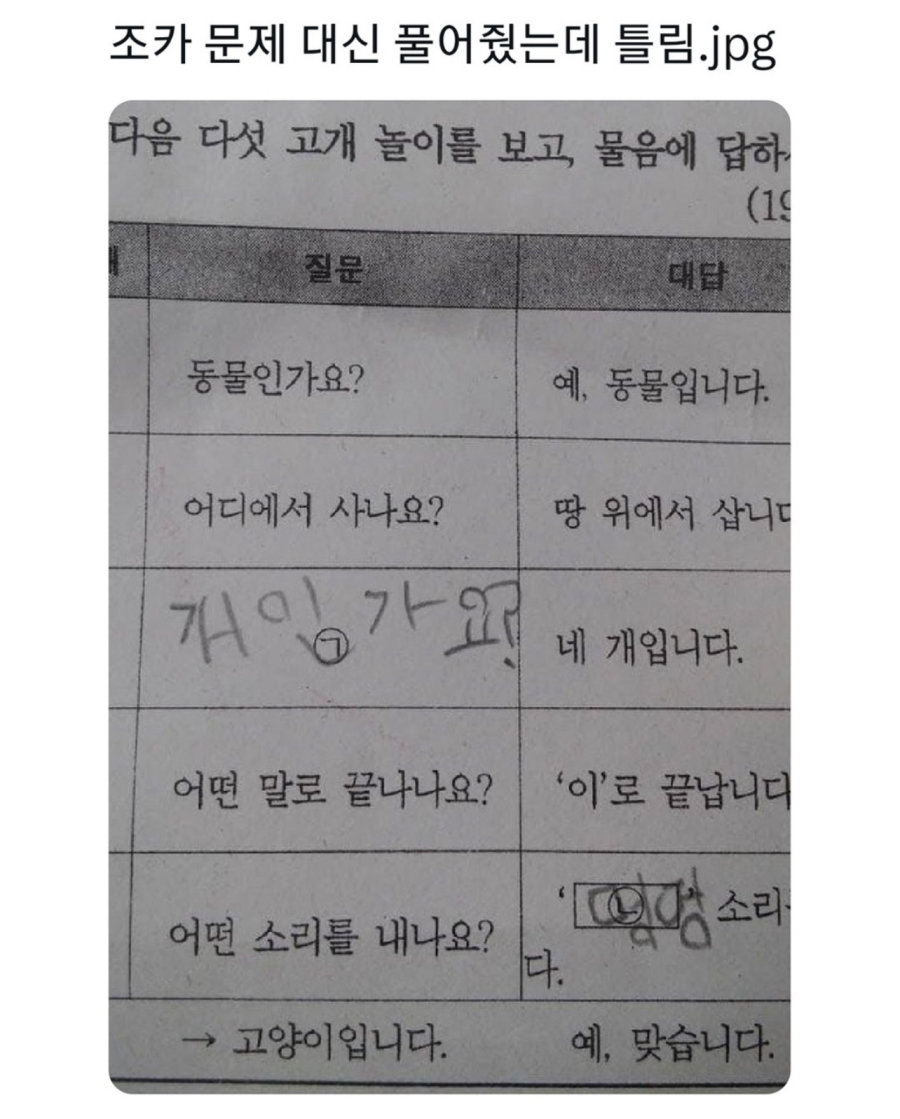 조카 문제 대신 풀어줬는데 틀림.jpg
다음 다섯 고개 놀이를 보고, 물음에 답하
(19
질문 대답
동물인가요? 예, 동물입니다.
어디에서 사나요? 땅 위에서 삽니다
개인가요?
㉠ 네 개입니다.
어떤 말로 끝나나요? ‘이’로 끝납니다
어떤 소리를 내나요? ‘ ㉡ ’ 소리
다.
→ 고양이입니다. 예, 맞습니다.